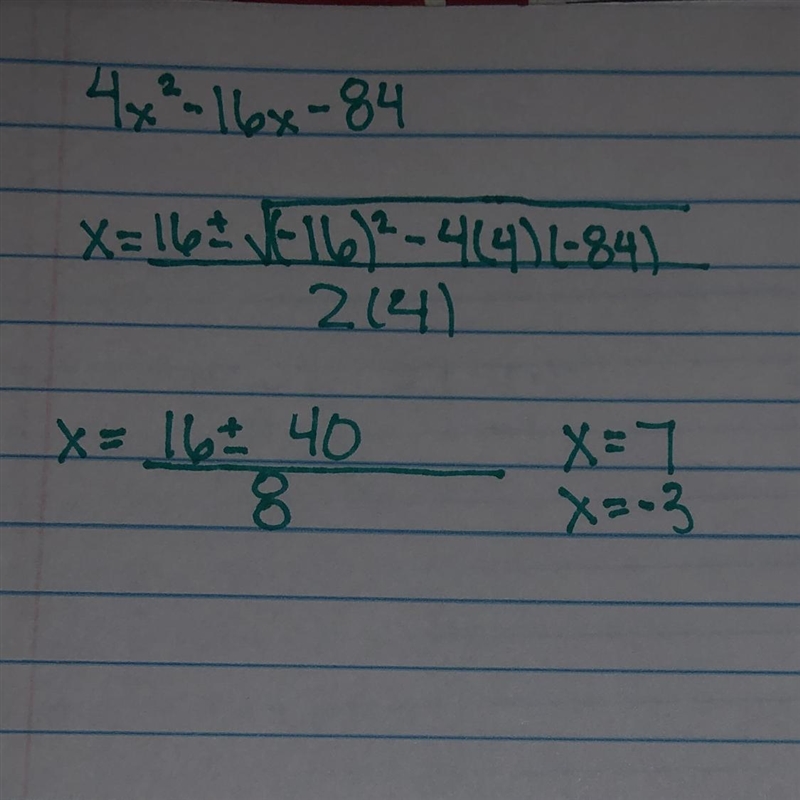 4x² - 16x - 84
x = 16 ± √(-16)² - 4(4)(-84)
2(4)
x = 16 ± 40 x = 7
8 x = -3